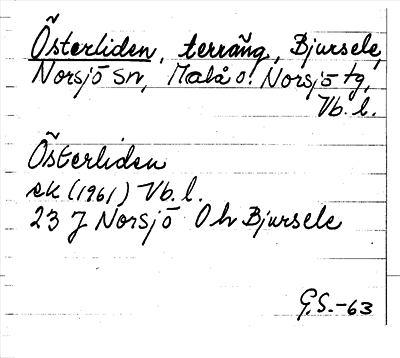 Österliden, terräng, Bjursele,
Norsjö sn, Malå o. Norsjö tg,
Vb. l.
Österliden
ek (1961) Vb. l.
23 J Norsjö 0 h Bjursele
G.S.-63